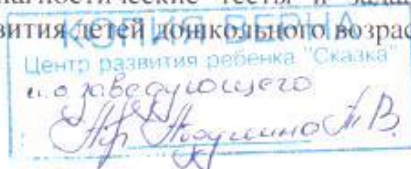 диагностические тесты и зада
вития детей дошкольного возрас
КОПИЯ ВЕРНА
Центр развития ребенка "Сказка"
и.о заведующего
Т.В.